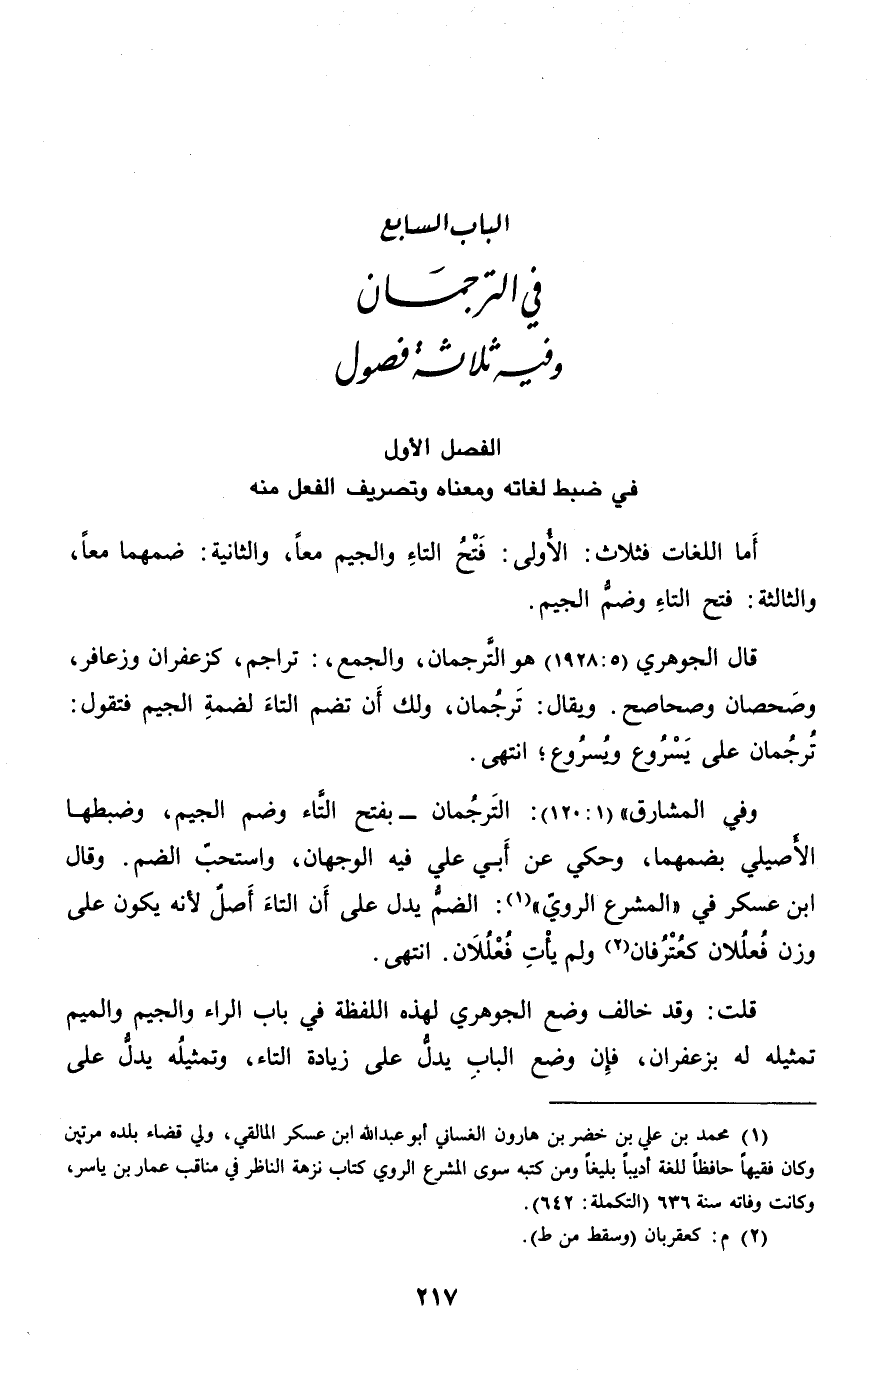 الباب السابع
في الترجمَان
وفيه ثلاثة فصول
الفصل الأول
في ضبط لغاته ومعناه وتصريف الفعل منه
أَما اللغات فثلاث: الأُولى: فَتْحُ التاءِ والجيم معاً، والثانية: ضمهما معاً،
والثالثة: فتح التاءِ وضمُّ الجيم.
قال الجوهري (٥:١٩٢٨) هو التَّرجمان، والجمع،: تراجم، كزعفران وزعافر،
وصَحصان وصحاصح. ويقال: تَرجُمان، ولك أَن تضم التاءَ لضمةِ الجيم فتقول:
تُرجُمان على يَسْرُوع ويُسرُوع؛ انتهى.
وفي المشارق» (١:١٢٠): التَرجُمان – بفتح التَّاء وضم الجيم، وضبطها
الأَصيلي بضمهما، وحكي عن أَبي علي فيه الوجهان، واستحبّ الضم. وقال
ابن عسكر في «المشرع الرويّ»(١): الضمُّ يدل على أَن التاءَ أَصلٌ لأنه يكون على
وزن فُعلُلان كعُتْرُفان(٢) ولم يأْتِ فُعْلُلَان. انتهى.
قلت: وقد خالف وضع الجوهري لهذه اللفظة في باب الراء والجيم والميم
تمثيله له بزعفران، فإِن وضع البابِ يدلُّ على زيادة التاء، وتمثيلُه يدلُّ على
(١) محمد بن علي بن خضر بن هارون الغساني أبو عبدالله ابن عسكر المالقي، ولي قضاء بلده مرتين
وكان فقيهاً حافظاً للغة أديباً بليغاً ومن كتبه سوى المشرع الروي كتاب نزهة الناظر في مناقب عمار بن ياسر،
وكانت وفاته سنة ٦٣٦ (التكملة: ٦٤٢).
(٢) م: كعقربان (وسقط من ط).
٢١٧